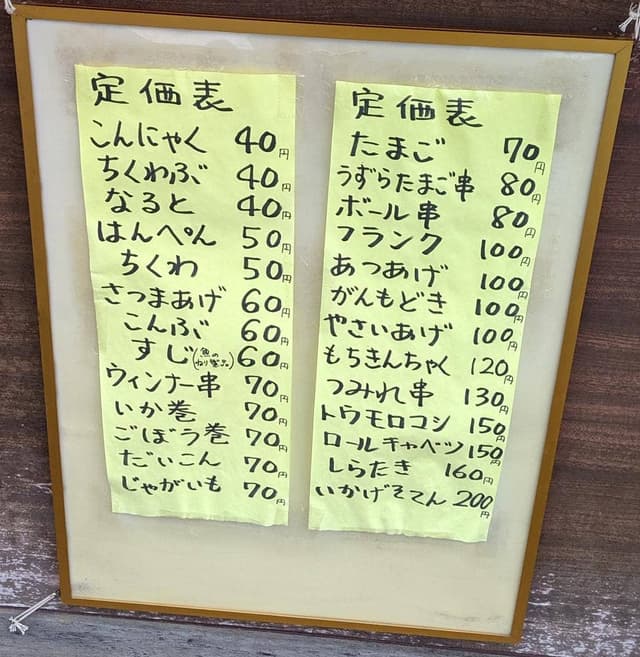 定価表
こんにゃく 40円
ちくわぶ 40円
なると 40円
はんぺん 50円
ちくわ 50円
さつまあげ 60円
こんぶ 60円
すじ(魚のねり製品) 60円
ウィンナー串 70円
いか巻 70円
ごぼう巻 70円
だいこん 70円
じゃがいも 70円
定価表
たまご 70円
うずらたまご串 80円
ボール串 80円
フランク 100円
あつあげ 100円
がんもどき 100円
やさいあげ 100円
もちきんちゃく 120円
つみれ串 130円
トウモロコシ 150円
ロールキャベツ 150円
しらたき 160円
いかげそてん 200円